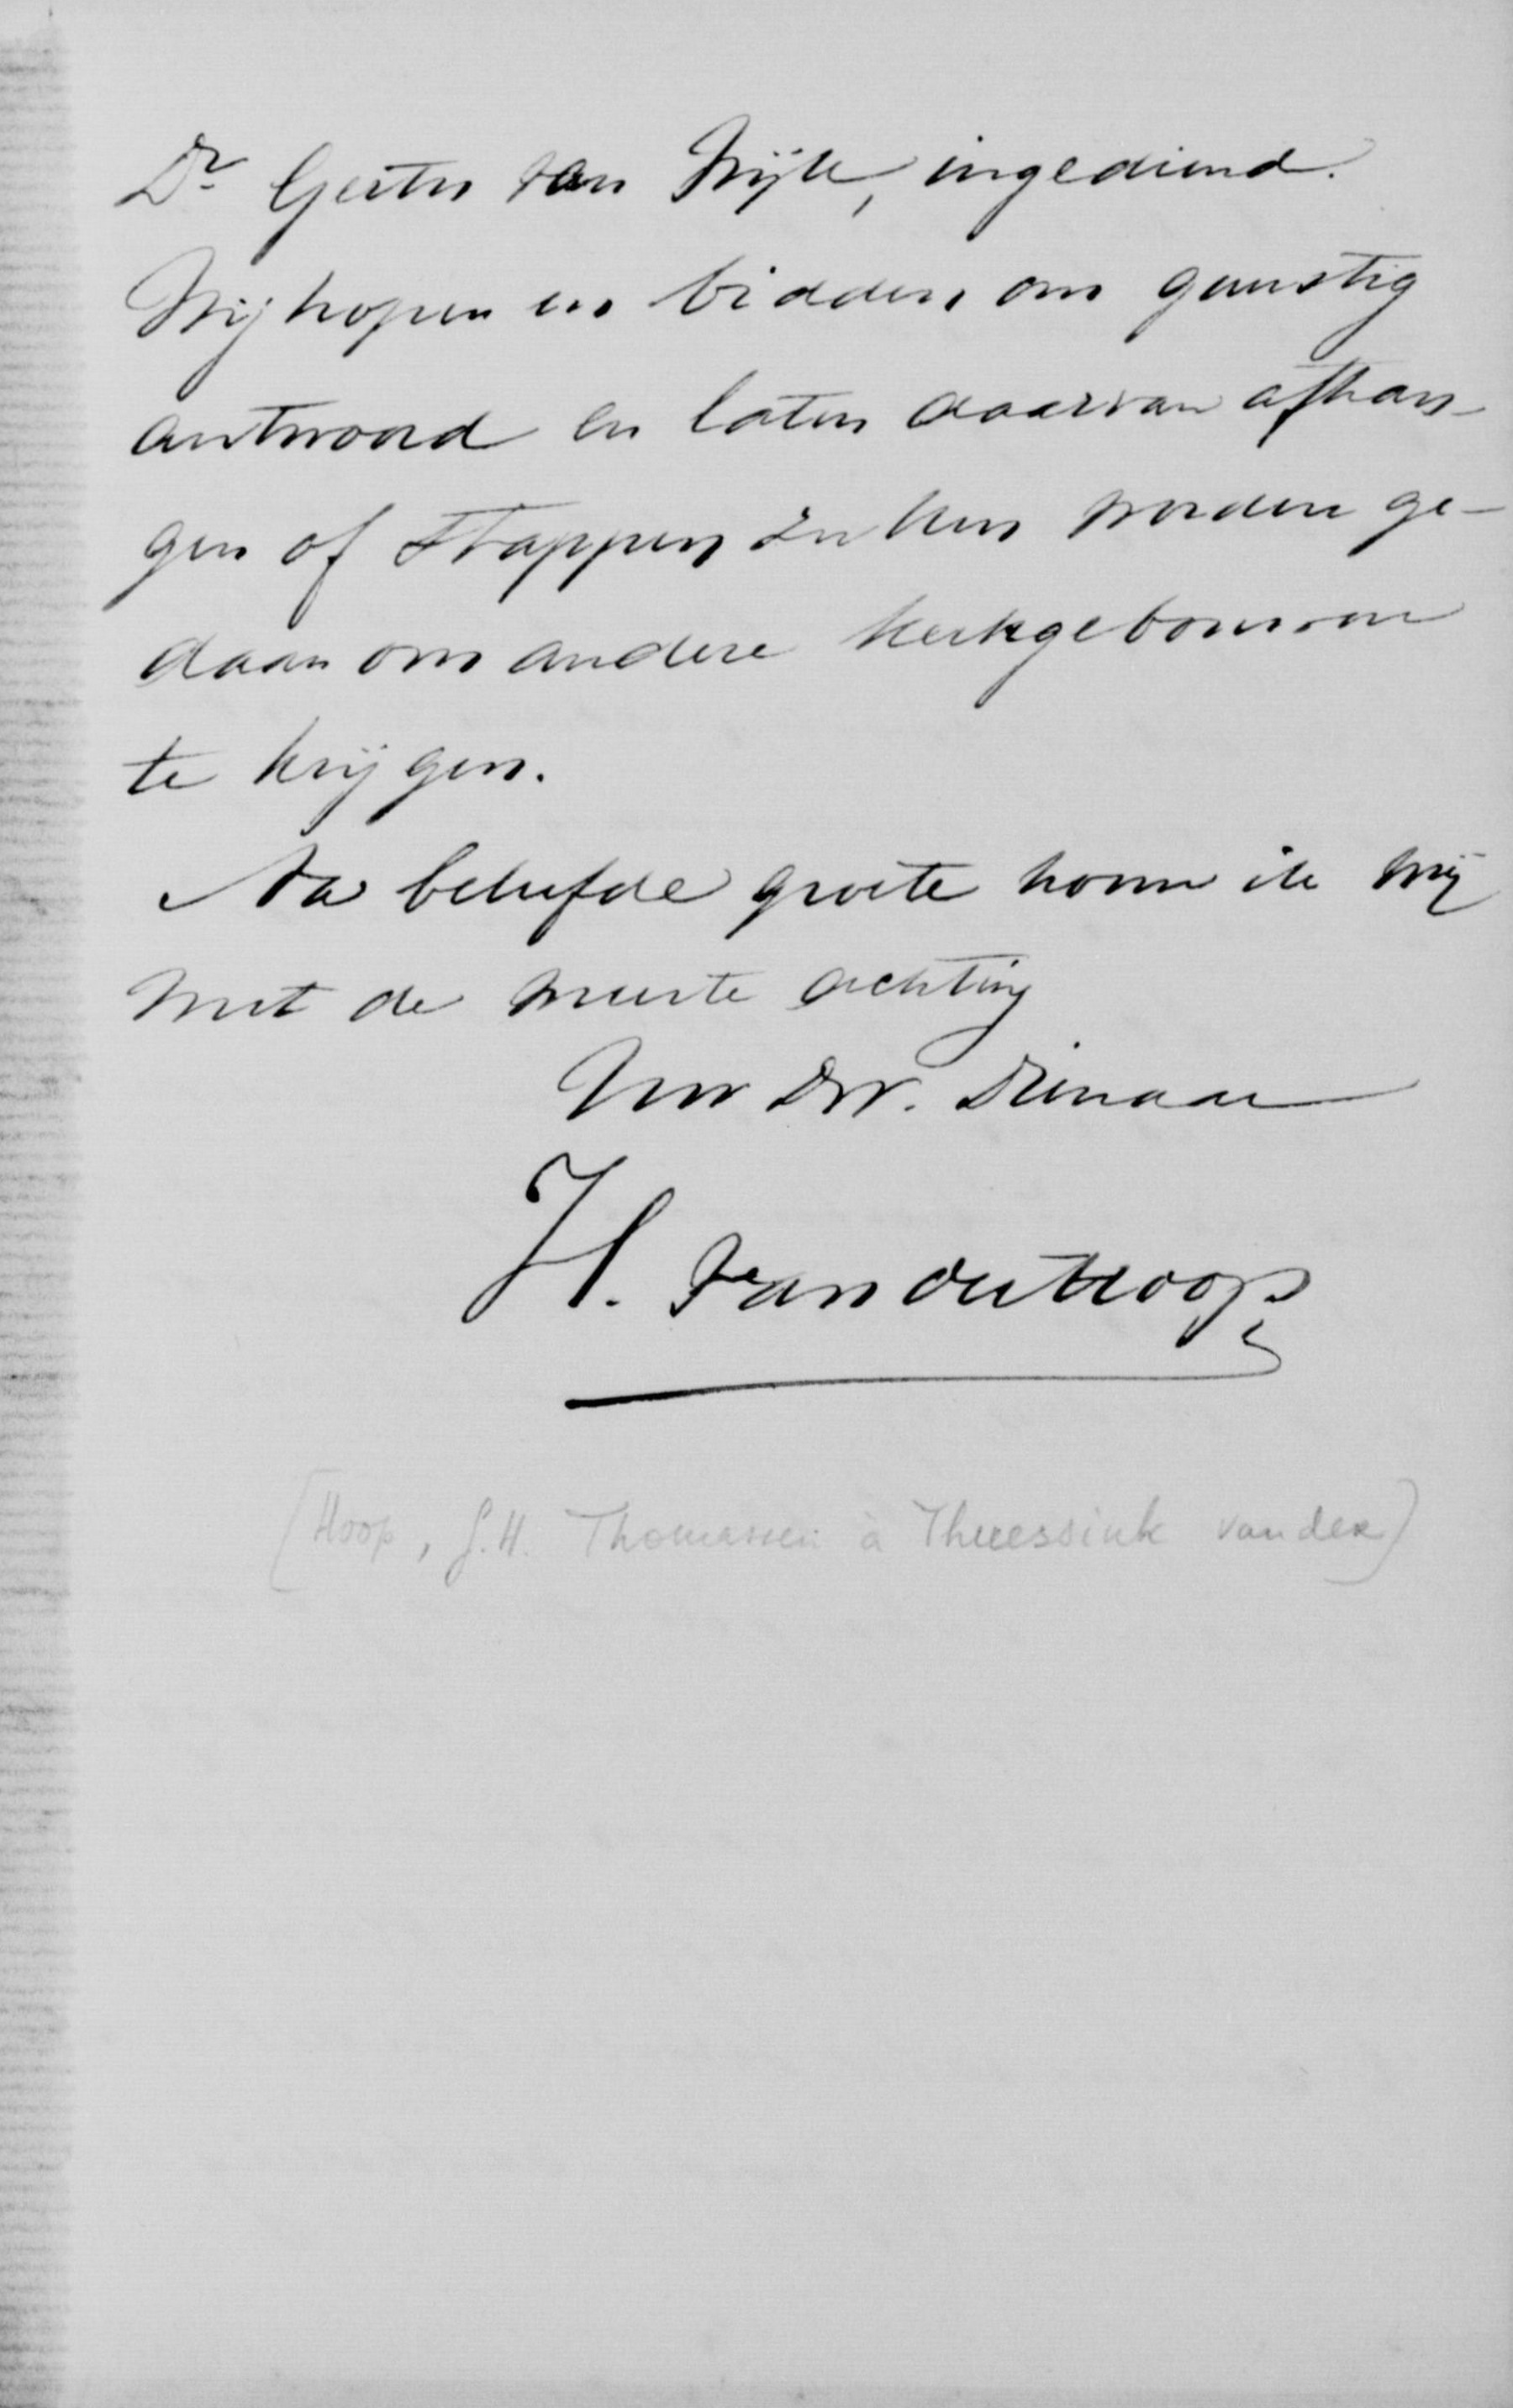 Dr Gerth van Wijk, ingediend.
Wij hopen en bidden om gunstig
antwoord en laten daarvan afhan-
gen of stappen zullen worden ge-
daan om andere kerkgebouwen
te krijgen.
Na beleefde groete noem ik mij
met de meeste achting
Uw Dw. Dienaar
H. van der Hoop
[Hoop, J.H. Thomassen à Thuessink van der]